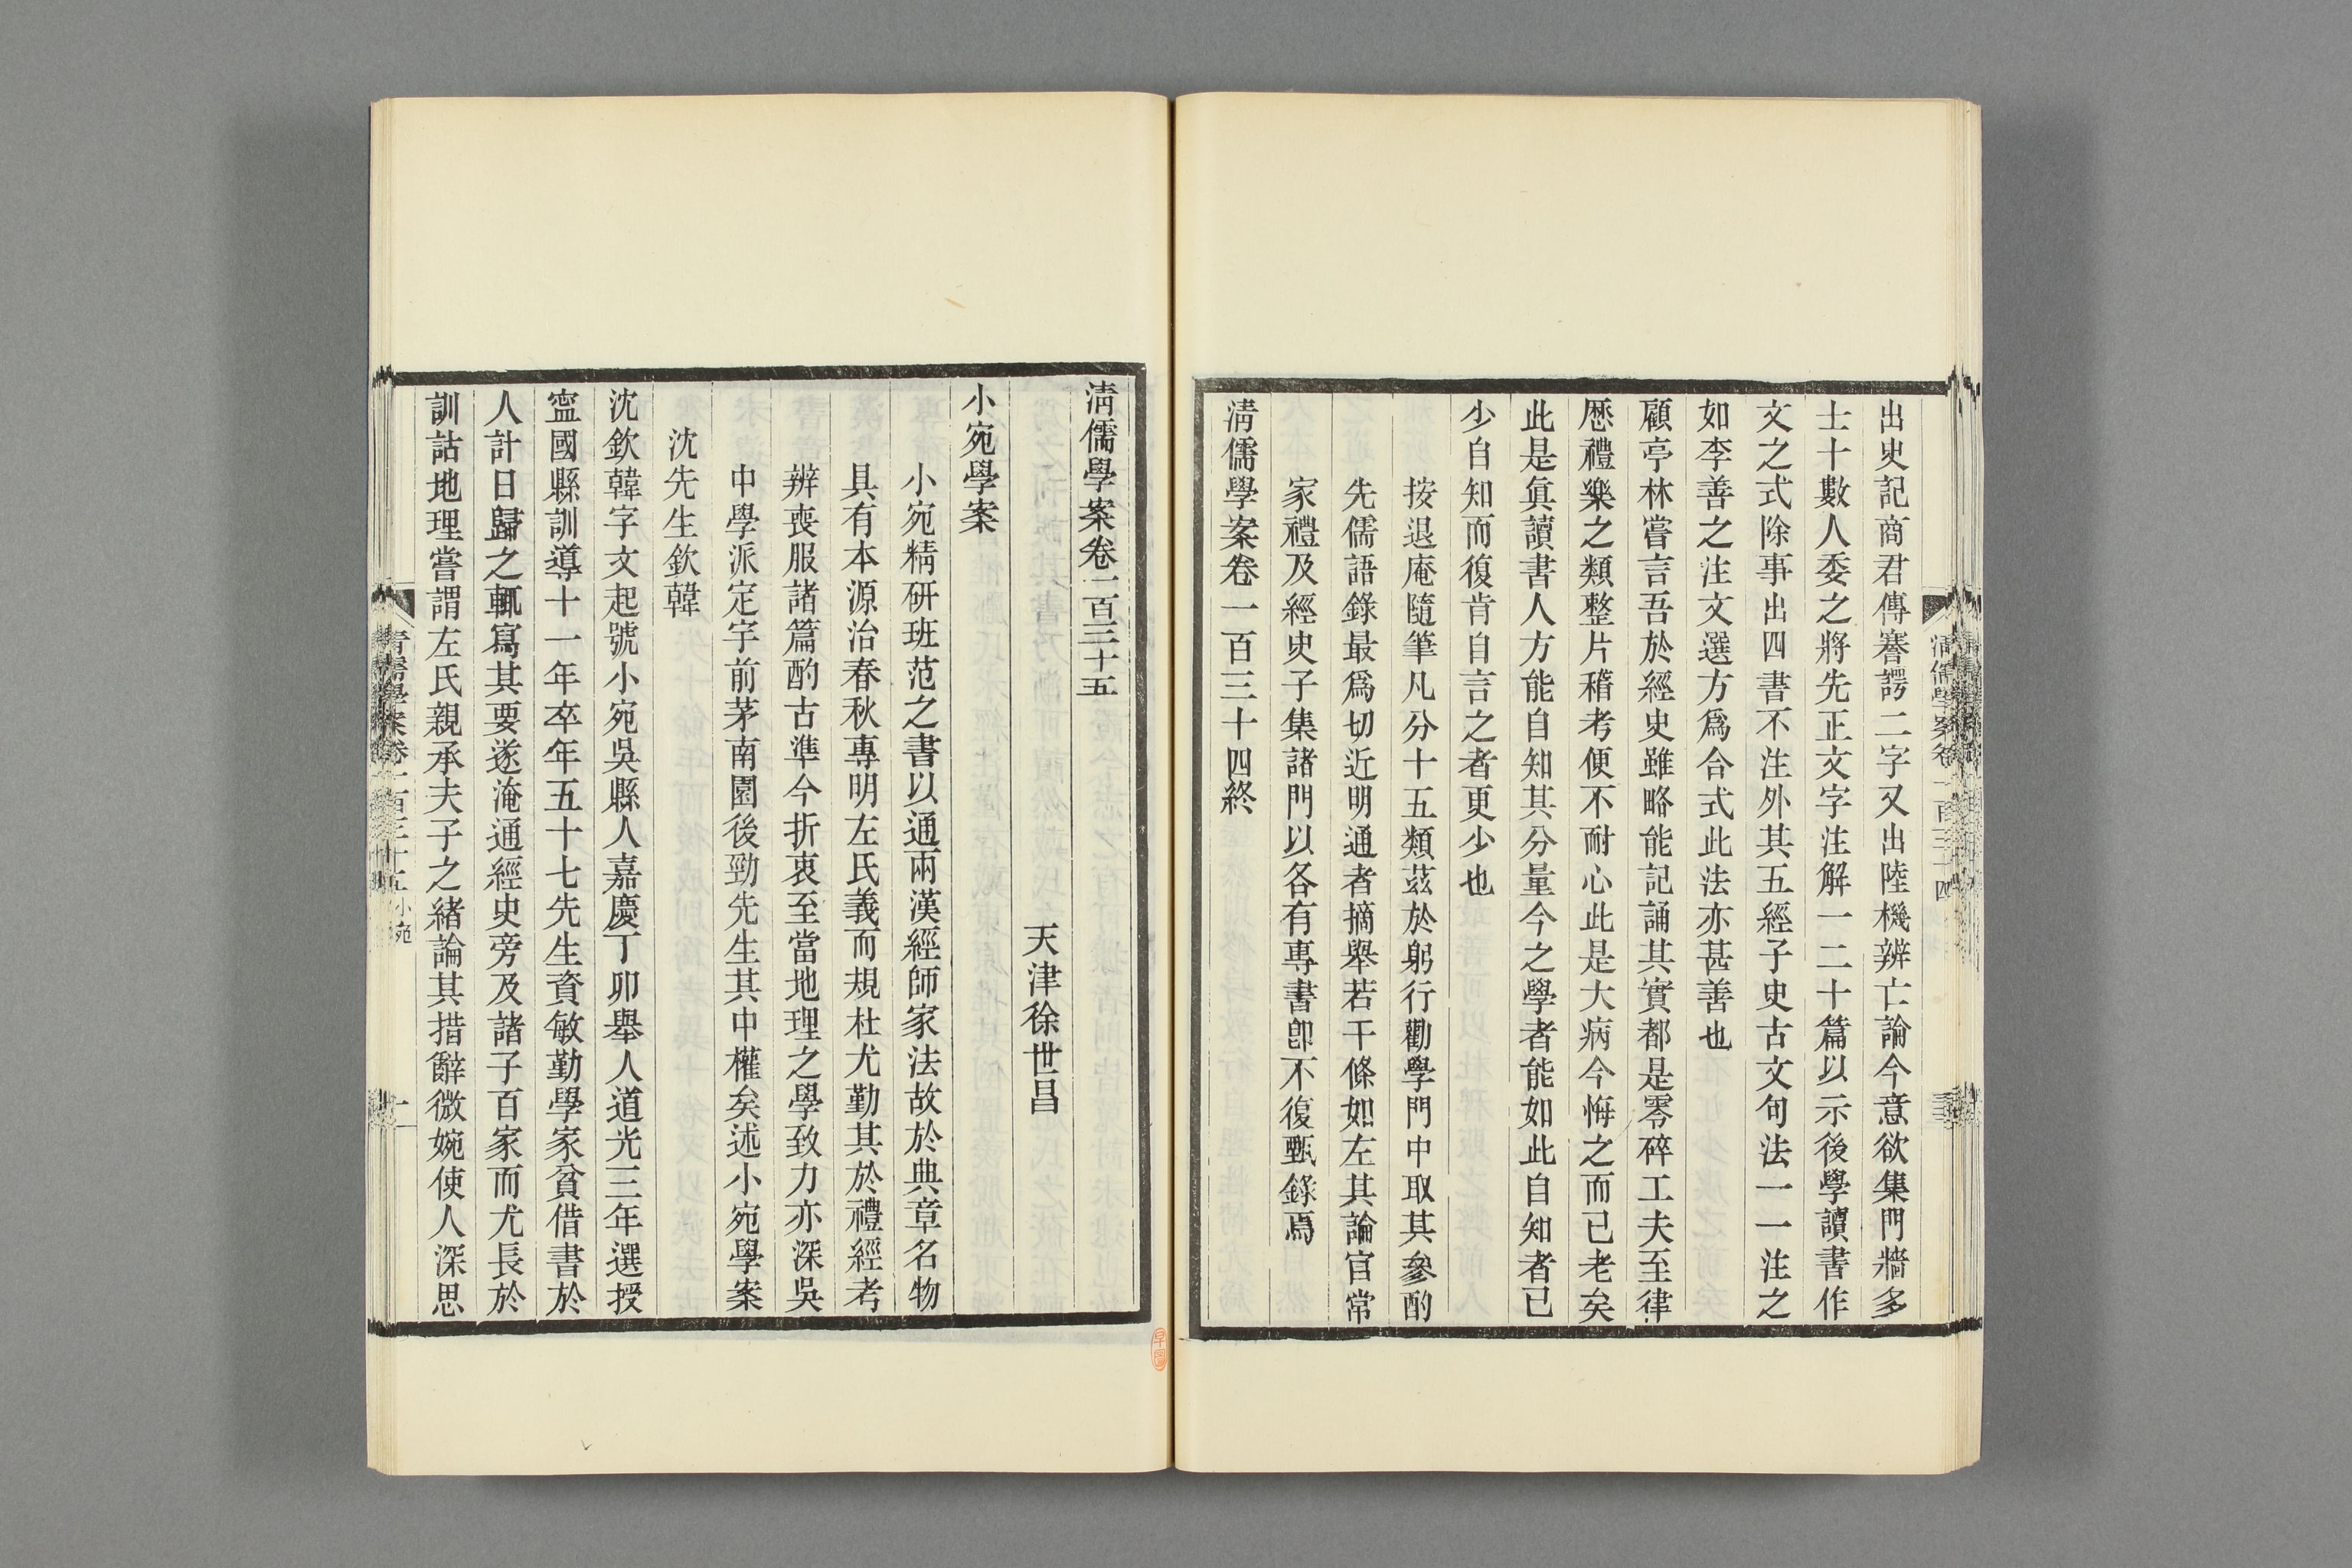 出史記商君傳謇諤二字又出陸機辨亡論今意欲集門牆多
士十數人委之將先正文字注解一二十篇以示後學讀書作
文之式除事出四書不注外其五經子史古文句法一一注之
如李善之注文選方爲合式此法亦甚善也
顧亭林嘗言吾於經史雖略能記誦其實都是零碎工夫至律
歷禮樂之類整片稽考便不耐心此是大病今悔之而已老矣
此是眞讀書人方能自知其分量今之學者能如此自知者已
少自知而復肯自言之者更少也
按退庵隨筆凡分十五類茲於躬行勸學門中取其參酌
先儒語錄最爲切近明通者摘舉若干條如左其論官常
家禮及經史子集諸門以各有專書卽不復甄錄焉
清儒學案卷一百三十四終
清儒學案卷一百三十四
清儒學案卷一百三十五
天津徐世昌
小宛學案
小宛精研班范之書以通兩漢經師家法故於典章名物
具有本源治春秋專明左氏義而規杜尤勤其於禮經考
辨喪服諸篇酌古準今折衷至當地理之學致力亦深吳
中學派定宇前茅南園後勁先生其中權矣述小宛學案
沈先生欽韓
沈欽韓字文起號小宛吳縣人嘉慶丁卯舉人道光三年選授
寍國縣訓導十一年卒年五十七先生資敏勤學家貧借書於
人計日歸之輒寫其要遂淹通經史旁及諸子百家而尤長於
訓詁地理嘗謂左氏親承夫子之緒論其措辭微婉使人深思
清儒學案卷一百三十五 小宛
一